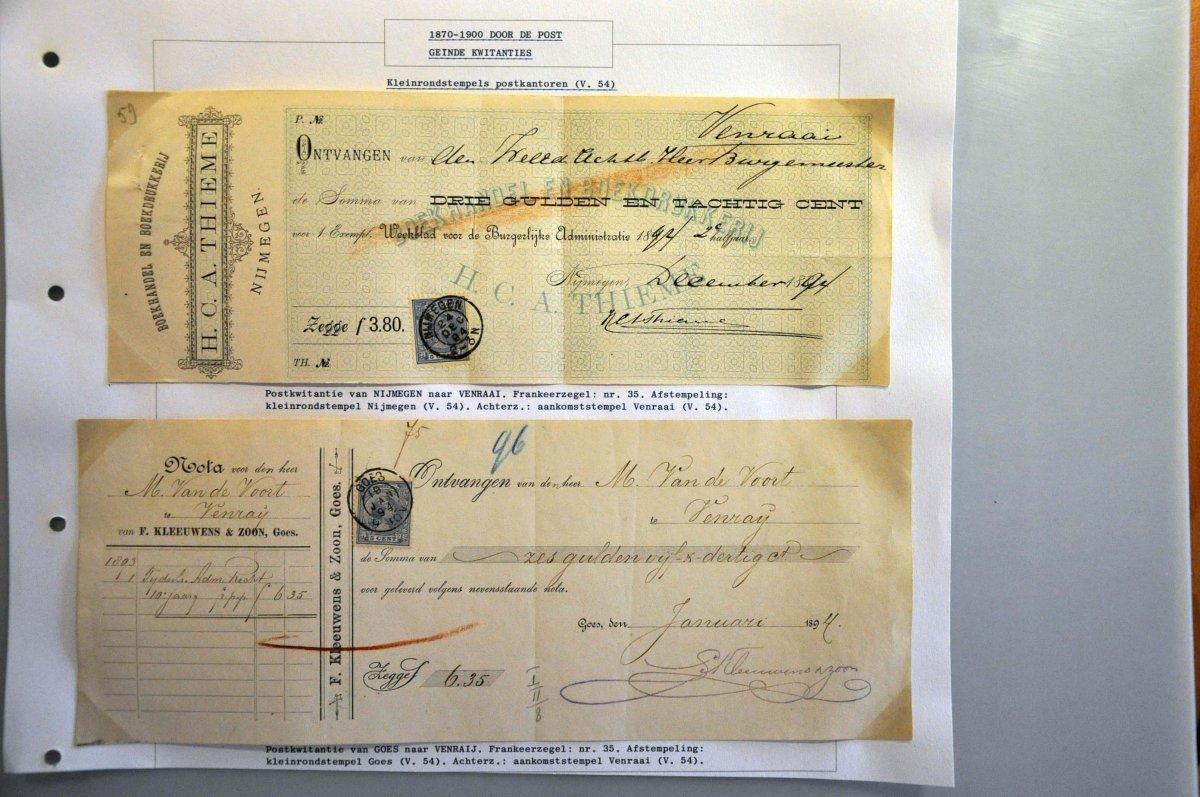 1870-1900 DOOR DE POST
GEINDE KWITANTIES
Kleinrondstempels postkantoren (V. 54)
59
BOEKHANDEL EN BOEKDRUKKERIJ
H. C. A. THIEME
NIJMEGEN.
P. №
Venraai
ONTVANGEN van den Weled. Achtb. Heer Burgemeester
de Somma van DRIE GULDEN EN TACHTIG CENT
BOEKHANDEL EN BOEKDRUKKERIJ
voor 1 Exempl. Weekblad voor de Burgerlijke Administratie 1894 2e halfjaar
H. C. A. THIEME
Nijmegen, December 1894
HCAThieme
Zegge f 3.80.
NIJMEGEN
24
DEC
94
TH. №
Postkwitantie van NIJMEGEN naar VENRAAI. Frankeerzegel: nr. 35. Afstempeling:
kleinrondstempel Nijmegen (V. 54). Achterz.: aankomststempel Venraai (V. 54).
75
96
Nota voor den heer
M. Van de Voort
te Venray
van F. KLEEUWENS & ZOON, Goes.
1893
Tijdschr. Adm. Recht
10e jaarg f 6 35
F. Kleeuwens & Zoon, Goes.
GOES
JAN
94
5 CENT
Ontvangen van den heer M. Van de Voort
te Venray
de Somma van zes gulden vijf & dertig ct
voor geleverd volgens nevensstaande nota.
Goes, den Januari 1894.
Zegge f 6.35
I
II
8
F Kleeuwens & zoon
Postkwitantie van GOES naar VENRAIJ. Frankeerzegel: nr. 35. Afstempeling:
kleinrondstempel Goes (V. 54). Achterz.: aankomststempel Venraai (V. 54).